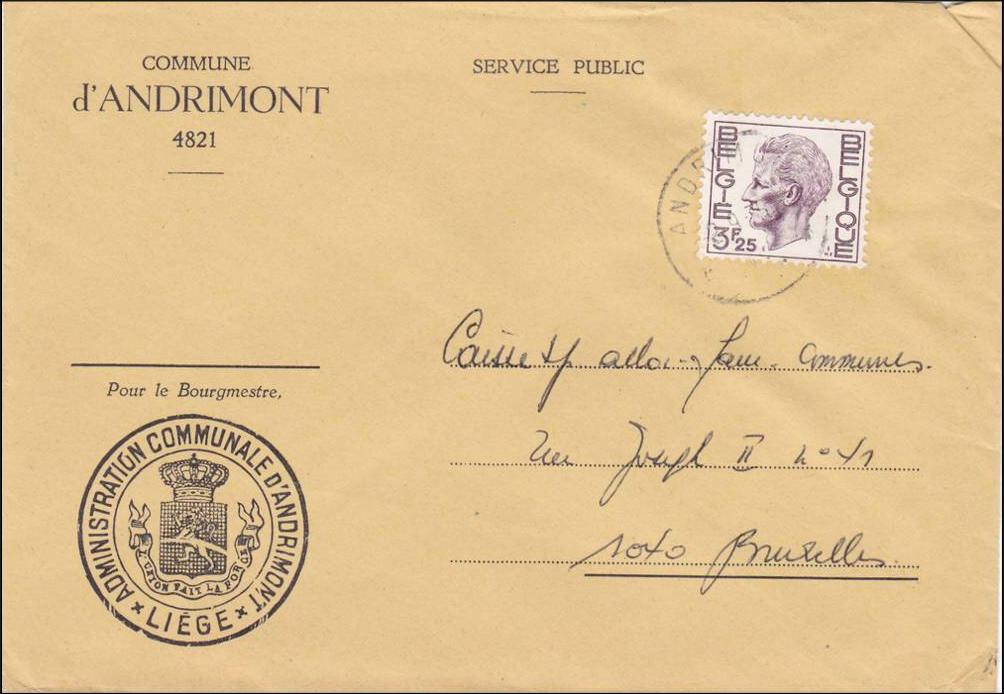 COMMUNE
d'ANDRIMONT
4821
SERVICE PUBLIC
BELGIE
BELGIQUE
3F25
Caisse sp alloc. fam. Communes.
Rue Joseph II n°
1040 Bruxelles
Pour le Bourgmestre,
ADMINISTRATION COMMUNALE D'ANDRIMONT
L'UNION FAIT LA FORCE
* LIÉGE *